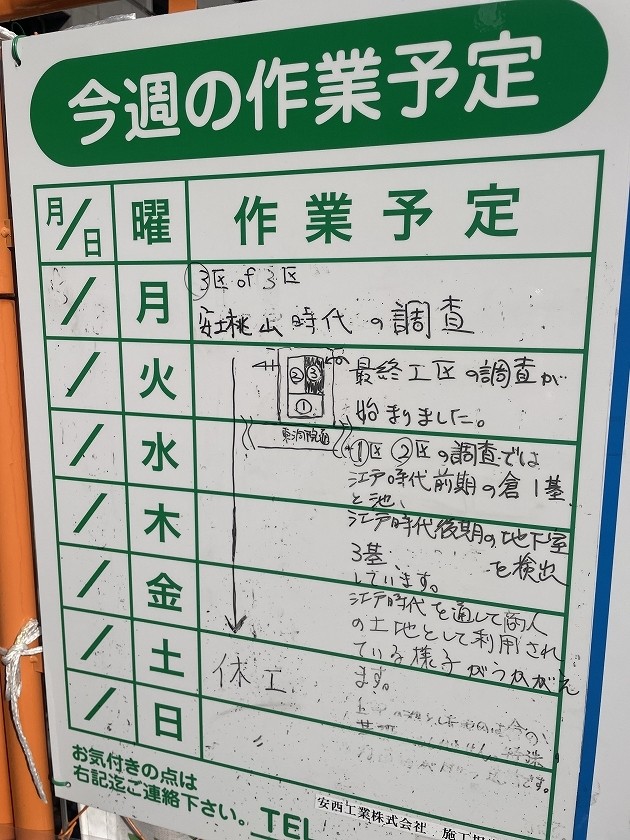 今週の作業予定
月/日 曜 作業予定
/ 月 ③区 of 3区
安土桃山時代の調査
/ 火
② ③
①
東洞院通
最終工区の調査が
始まりました。
/ 水
①区②区の調査では
江戸時代前期の倉1基
と池、
/ 木
江戸時代後期の地下室
3基、を検出
しています。
/ 金
江戸時代を通して商人
の土地として利用され
ている様子がうかがえ
ます。
/ 土 休工
/ 日
お気付きの点は
右記迄ご連絡下さい。TEL
安西工業株式会社 施工担